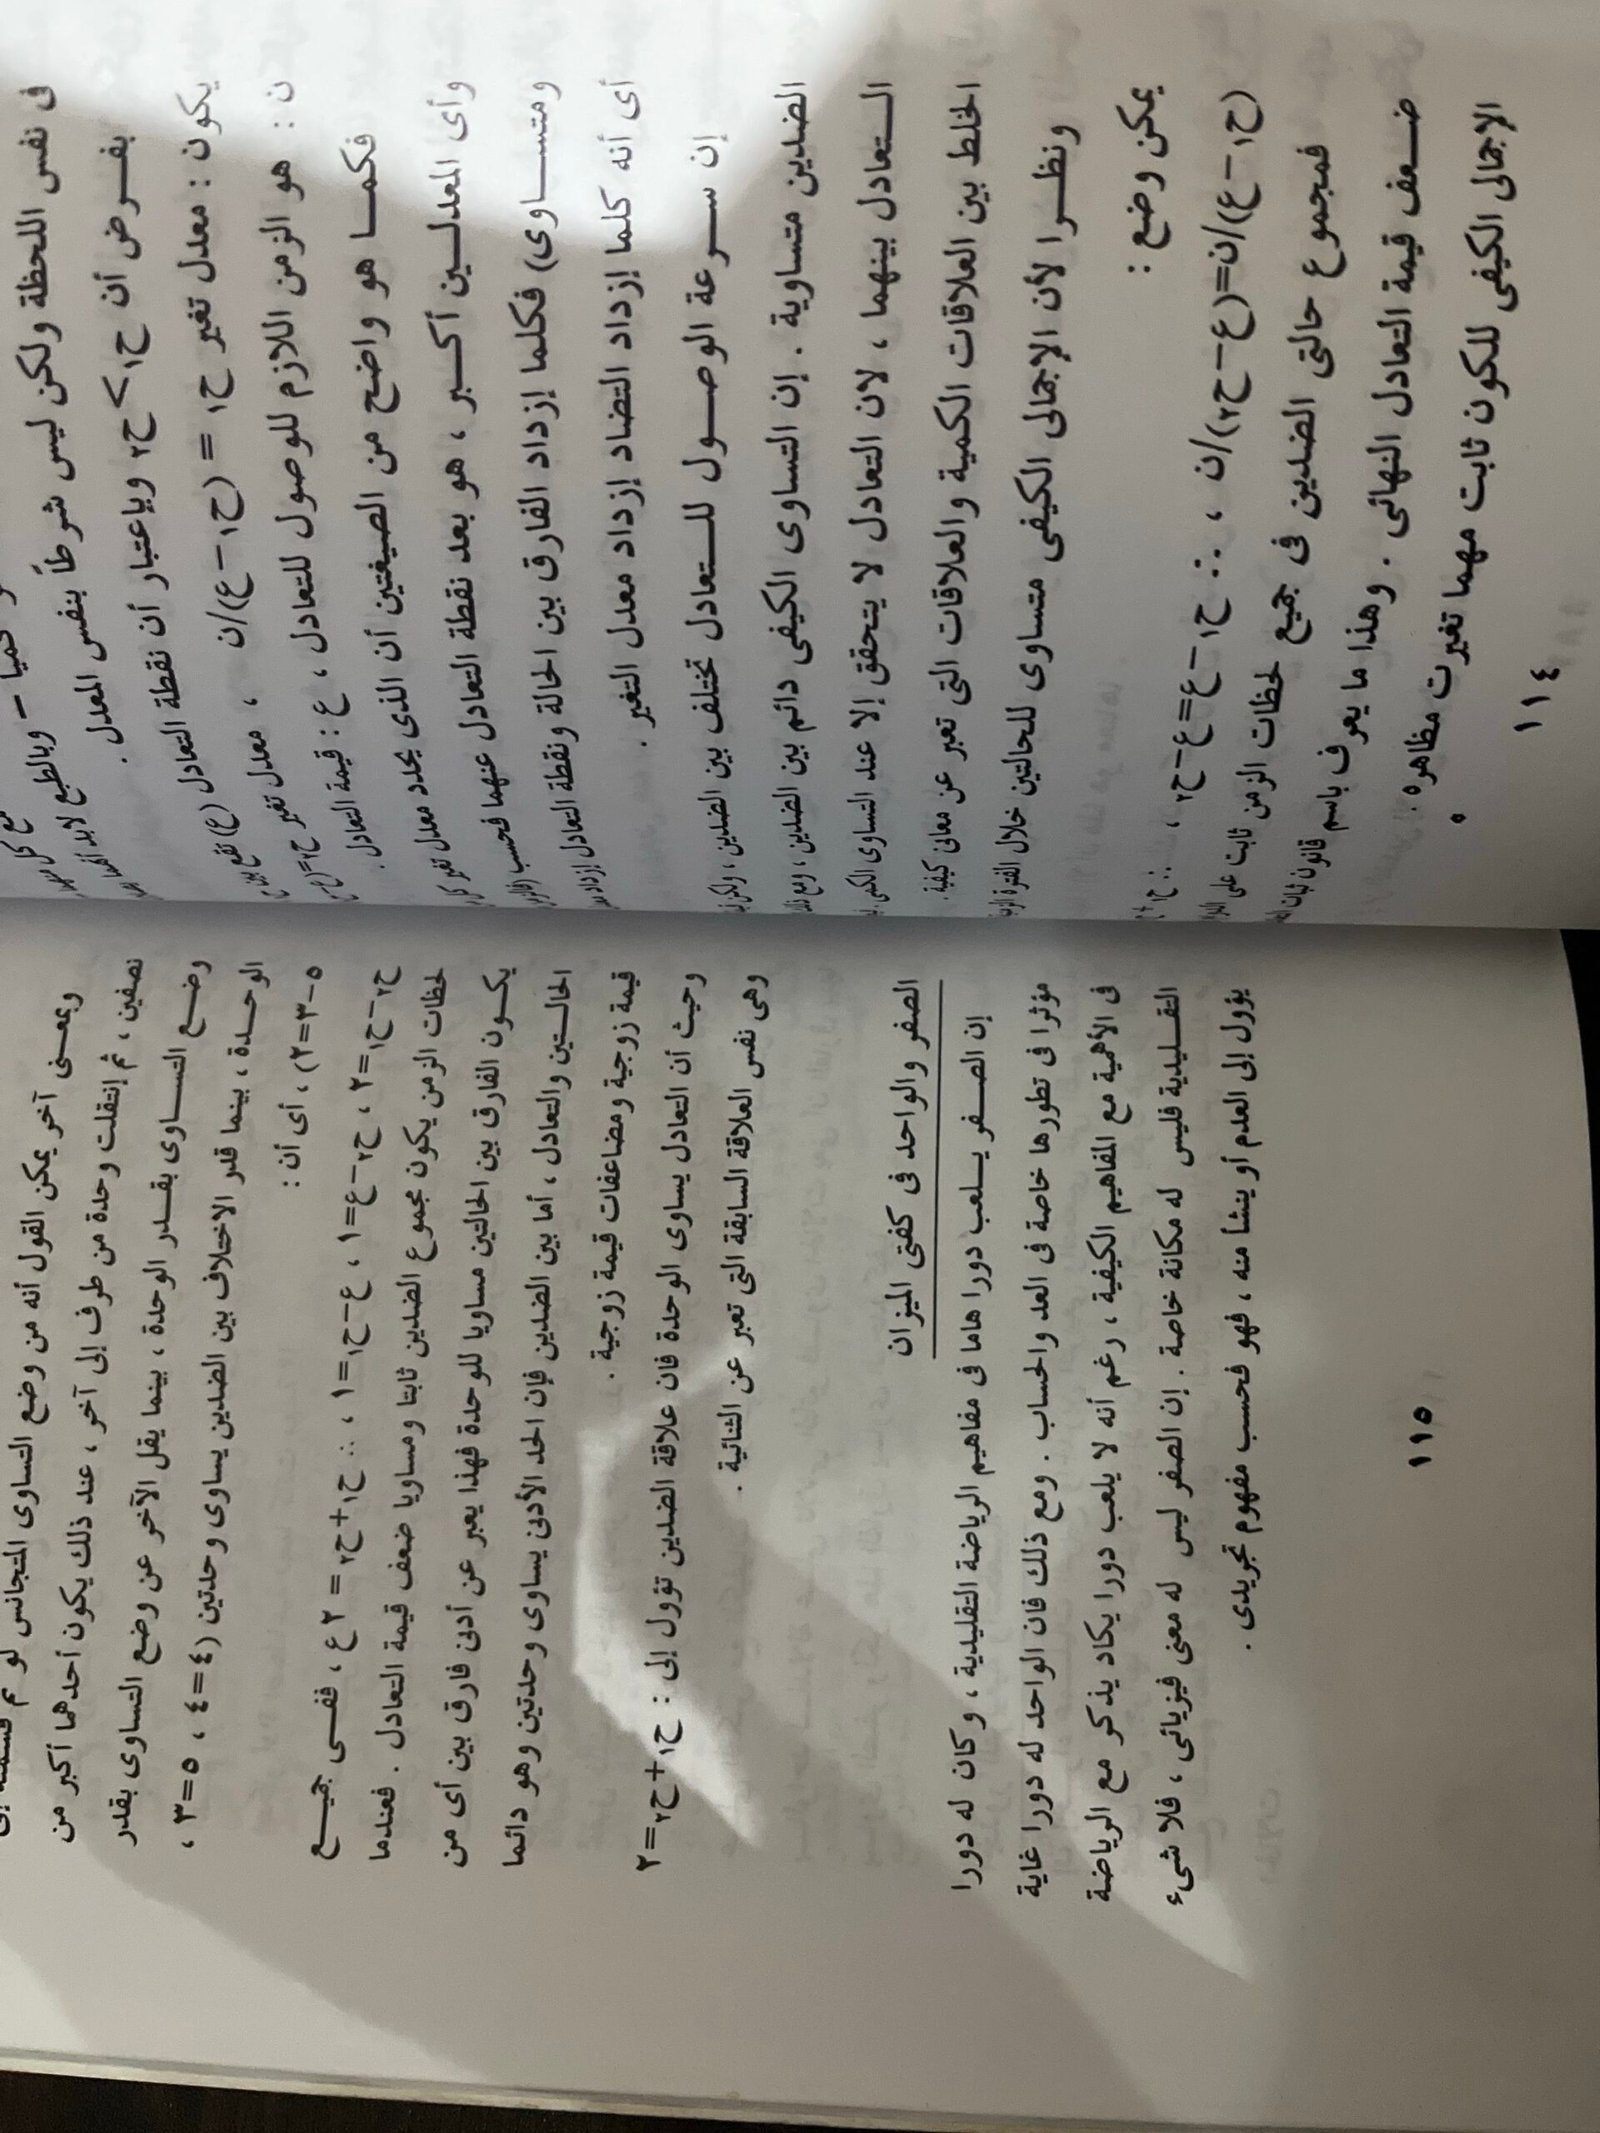 فى نفس اللحظة ولكن ليس شرطاً بنفس المعدل .
بفرض أن ح١ > ح٢ وباعتبار أن نقطة التعادل (ع) تقع بين
يكون : معدل تغير ح١ = (ح١-ع)/ن ، معدل تغير ح٢=(ع-
ن : هو الزمن اللازم للوصول للتعادل ، ع : قيمة التعادل .
فكما هو واضح من الصيغتين أن الذى يحدد معدل تغير كل
وأى المعدلين أكبر ، هو بعد نقطة التعادل عنهما فحسب
ومتساوى) فكلما إزداد الفارق بين الحالة ونقطة التعادل إزداد
أى أنه كلما إزداد التضاد إزداد معدل التغير .
إن سرعة الوصول للتعادل تختلف بين الضدين ، ولكن
الضدين متساوية . إن التساوى الكيفى دائم بين الضدين ، ومع
التعادل بينهما ، لان التعادل لا يتحقق إلا عند التساوى الكمى
الخلط بين العلاقات الكمية والعلاقات التى تعبر عن معانى كيفية .
ونظرا لأن الإجمالى الكيفى متساوى للحالتين خلال الفترة
يمكن وضع :
(ح١-ع)/ن=(ع-ح٢)/ن ، ∴ ح١-ع=ع-ح٢ ، ∴ ح١+
فمجموع حالتى الضدين فى جميع لحظات الزمن ثابت على
ضعف قيمة التعادل النهائى . وهذا ما يعرف باسم قانون ثبات
الإجمالى الكيفى للكون ثابت مهما تغيرت مظاهره .
١١٤
وبمعنى آخر يمكن القول أنه من وضع التساوى المتجانس لو تم قسمته إلى
نصفين ، ثم إنتقلت وحدة من طرف إلى آخر ، عند ذلك يكون أحدهما أكبر من
وضع التساوى بقدر الوحدة ، بينما يقل الآخر عن وضع التساوى بقدر
الوحدة ، بينما قدر الاختلاف بين الضدين يساوى وحدتين (٤=٤ ، ٥=٣ ،
٥-٣=٢) ، أى أن :
ح٢-ح١=٢ ، ح٢-ع=١ ، ع-ح١=١ ، ∴ ح١+ح٢ = ٢ع ، ففى جميع
لحظات الزمن يكون مجموع الضدين ثابتا ومساويا ضعف قيمة التعادل . فعندما
يكون الفارق بين الحالتين مساويا للوحدة فهذا يعبر عن أدنى فارق بين أى من
الحالتين والتعادل ، أما بين الضدين فإن الحد الأدنى يساوى وحدتين وهو دائما
قيمة زوجية ومضاعفات قيمة زوجية .
وحيث أن التعادل يساوى الوحدة فان علاقة الضدين تؤول إلى : ح١+ح٢=٢
وهى نفس العلاقة السابقة التى تعبر عن الثنائية .
الصفر والواحد فى كفتى الميزان
إن الصفر يلعب دورا هاما فى مفاهيم الرياضة التقليدية ، وكان له دورا
مؤثرا فى تطورها خاصة فى العد والحساب . ومع ذلك فان الواحد له دورا غاية
فى الأهمية مع المفاهيم الكيفية ، رغم أنه لا يلعب دورا يكاد يذكر مع الرياضة
التقليدية فليس له مكانة خاصة . إن الصفر ليس له معنى فيزيائى ، فلا شىء
يؤول إلى العدم أو ينشأ منه ، فهو فحسب مفهوم تجريدى .
١١٥